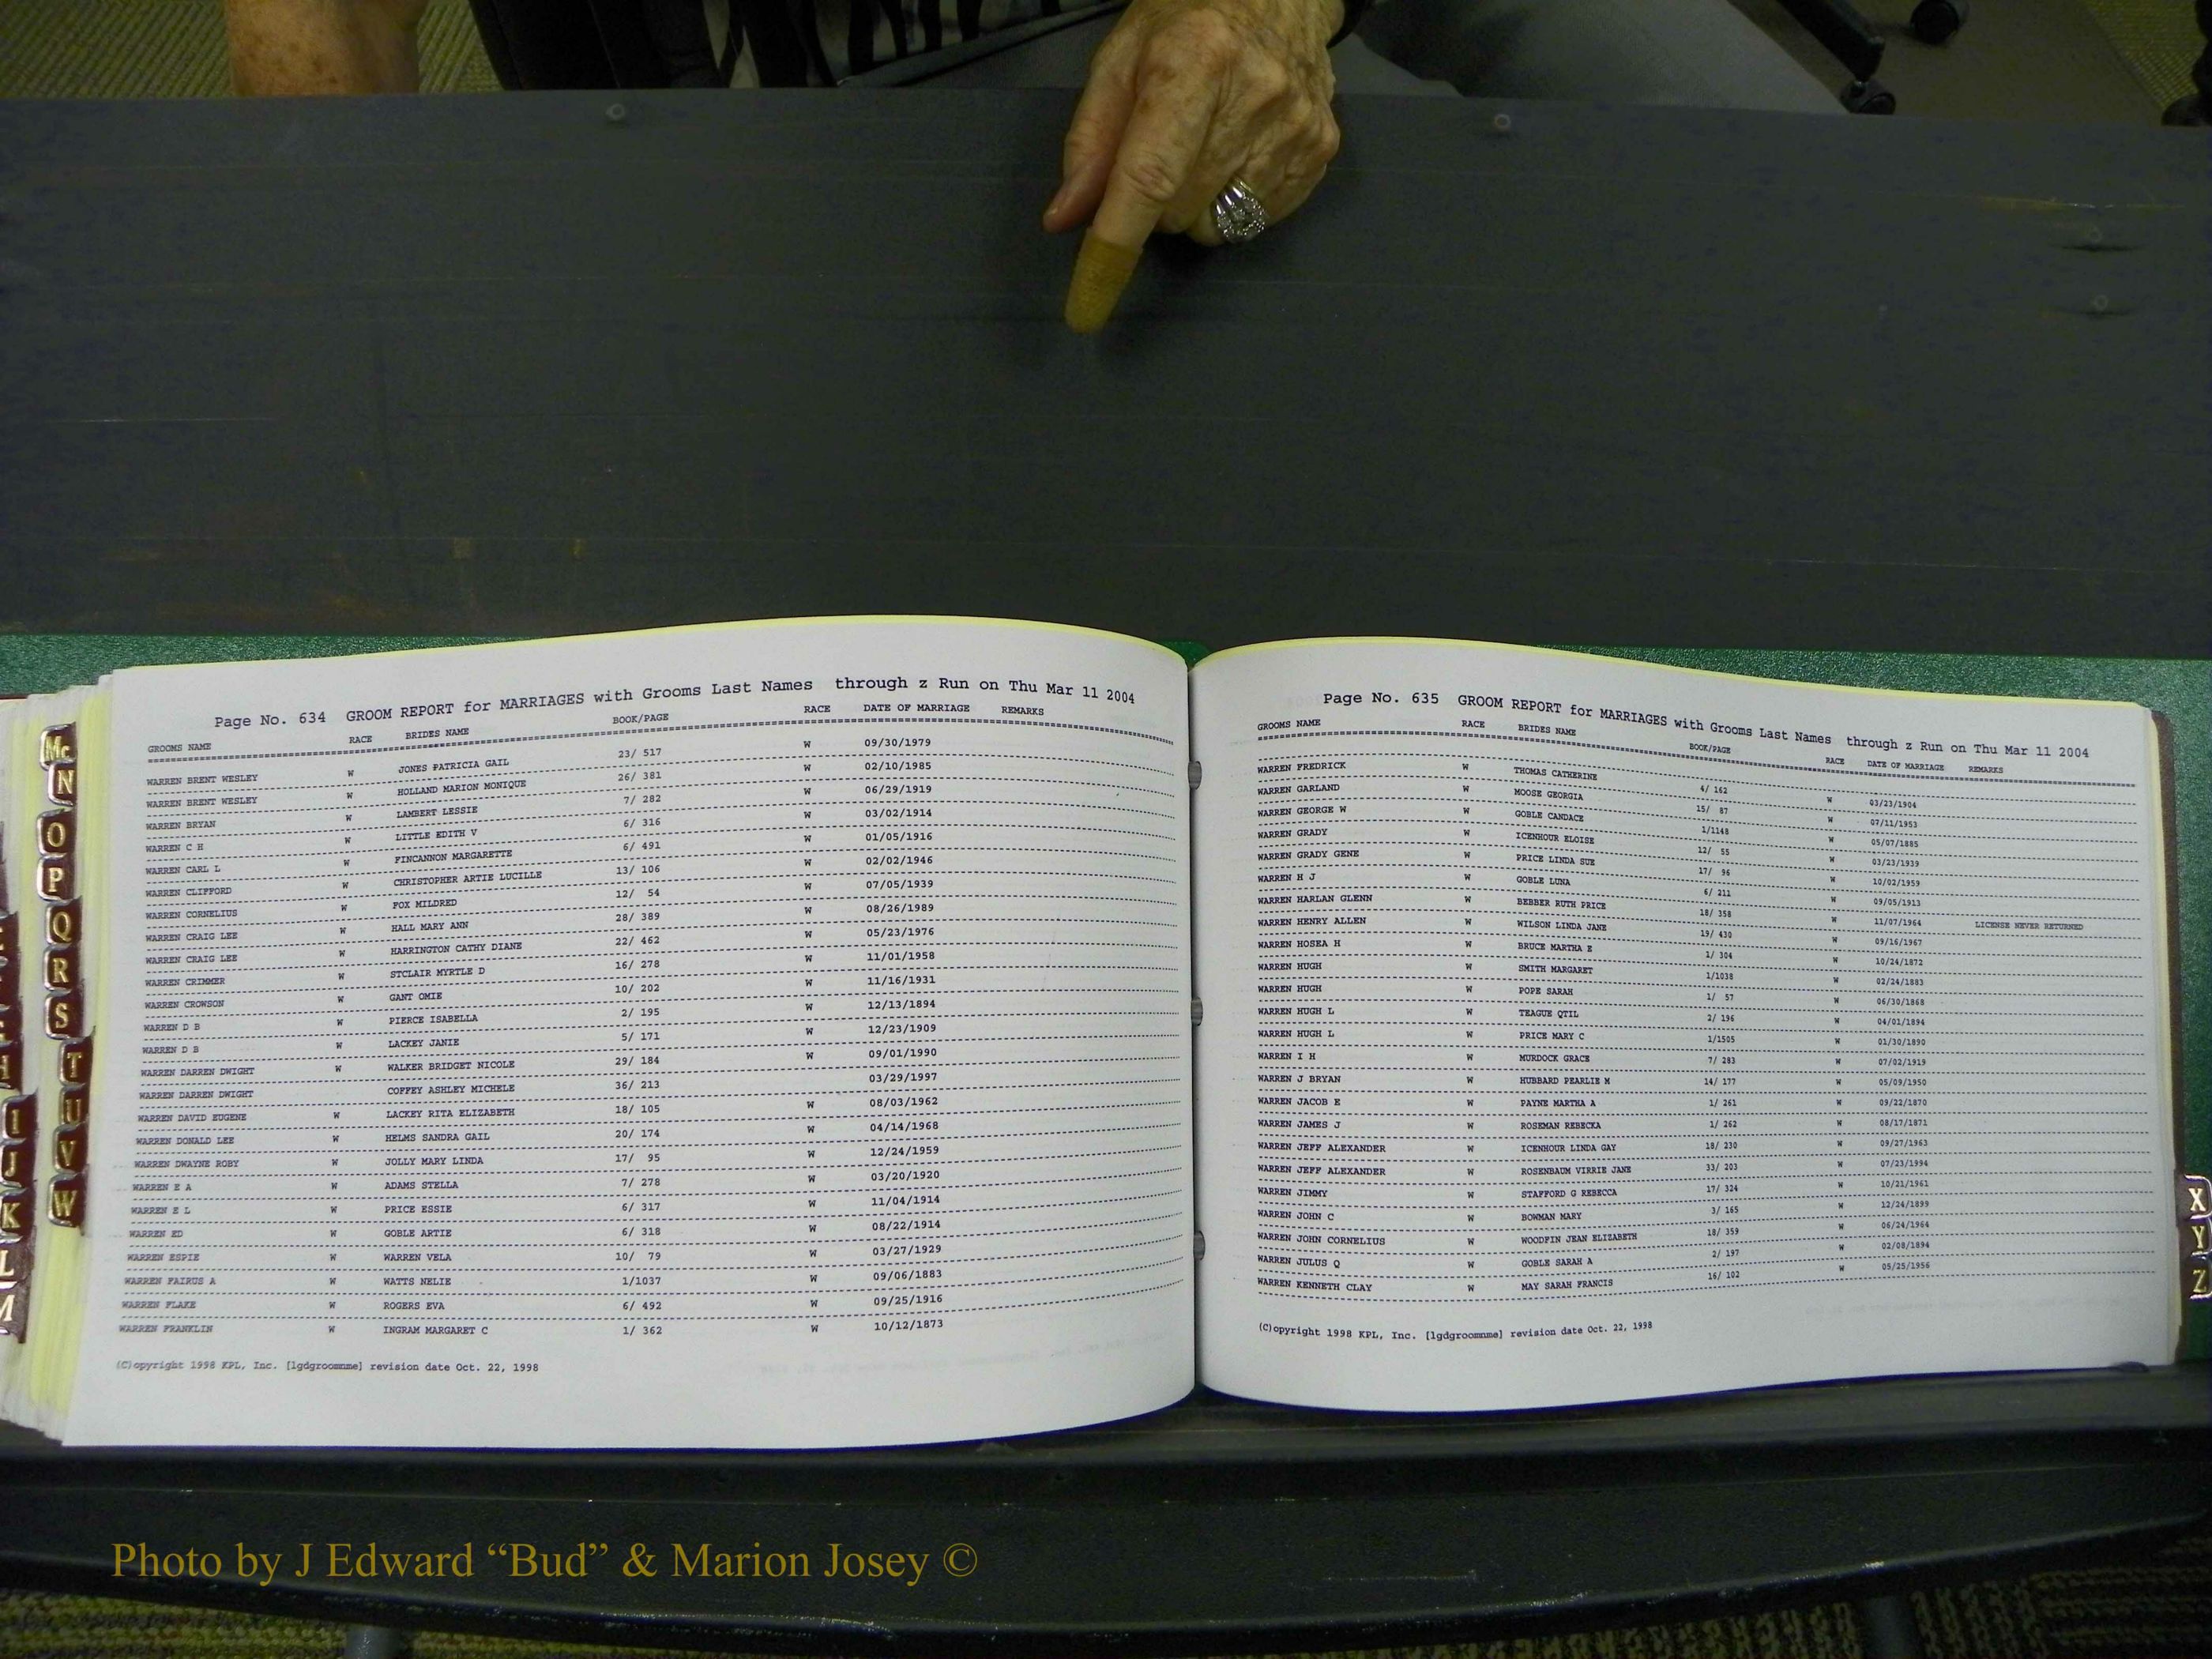 Page No. 634 GROOM REPORT for MARRIAGES with Grooms Last Names through z Run on Thu Mar 11 2004
GROOMS NAME RACE BRIDES NAME BOOK/PAGE RACE DATE OF MARRIAGE REMARKS
WARREN BRENT WESLEY W JONES PATRICIA GAIL 23/ 517 W 09/30/1979
WARREN BRENT WESLEY W HOLLAND MARION MONIQUE 26/ 381 W 02/10/1985
WARREN BRYAN W LAMBERT LESSIE 7/ 282 W 06/29/1919
WARREN C H W LITTLE EDITH V 6/ 316 W 03/02/1914
WARREN CARL L W FINCANNON MARGARETTE 6/ 491 W 01/05/1916
WARREN CLIFFORD W CHRISTOPHER ARTIE LUCILLE 13/ 106 W 02/02/1946
WARREN CORNELIUS W FOX MILDRED 12/ 54 W 07/05/1939
WARREN CRAIG LEE W HALL MARY ANN 28/ 389 W 08/26/1989
WARREN CRAIG LEE W HARRINGTON CATHY DIANE 22/ 462 W 05/23/1976
WARREN CRIMMER W STCLAIR MYRTLE D 16/ 278 W 11/01/1958
WARREN CROWSON W GANT OMIE 10/ 202 W 11/16/1931
WARREN D B W PIERCE ISABELLA 2/ 195 W 12/13/1894
WARREN D B W LACKEY JANIE 5/ 171 W 12/23/1909
WARREN DARREN DWIGHT W WALKER BRIDGET NICOLE 29/ 184 W 09/01/1990
WARREN DARREN DWIGHT COFFEY ASHLEY MICHELE 36/ 213 03/29/1997
WARREN DAVID EUGENE W LACKEY RITA ELIZABETH 18/ 105 W 08/03/1962
WARREN DONALD LEE W HELMS SANDRA GAIL 20/ 174 W 04/14/1968
WARREN DWAYNE ROBY W JOLLY MARY LINDA 17/ 95 W 12/24/1959
WARREN E A W ADAMS STELLA 7/ 278 W 03/20/1920
WARREN E L W PRICE ESSIE 6/ 317 W 11/04/1914
WARREN ED W GOBLE ARTIE 6/ 318 W 08/22/1914
WARREN ESPIE W WARREN VELA 10/ 79 W 03/27/1929
WARREN FAIRUS A W WATTS NELIE 1/1037 W 09/06/1883
WARREN FLAKE W ROGERS EVA 6/ 492 W 09/25/1916
WARREN FRANKLIN W INGRAM MARGARET C 1/ 362 W 10/12/1873
(C)opyright 1998 KPL, Inc. [lgdgroomnme] revision date Oct. 22, 1998
Page No. 635 GROOM REPORT for MARRIAGES with Grooms Last Names through z Run on Thu Mar 11 2004
GROOMS NAME RACE BRIDES NAME BOOK/PAGE RACE DATE OF MARRIAGE REMARKS
WARREN FREDRICK W THOMAS CATHERINE 4/ 162 W 03/23/1904
WARREN GARLAND W MOOSE GEORGIA 15/ 87 W 07/11/1953
WARREN GEORGE W W GOBLE CANDACE 1/1148 W 05/07/1885
WARREN GRADY W ICENHOUR ELOISE 12/ 55 W 03/23/1939
WARREN GRADY GENE W PRICE LINDA SUE 17/ 96 W 10/02/1959
WARREN H J W GOBLE LUNA 6/ 211 W 09/05/1913
WARREN HARLAN GLENN W BEBBER RUTH PRICE 18/ 358 W 11/07/1964 LICENSE NEVER RETURNED
WARREN HENRY ALLEN W WILSON LINDA JANE 19/ 430 W 09/16/1967
WARREN HOSEA H W BRUCE MARTHA E 1/ 304 W 10/24/1872
WARREN HUGH W SMITH MARGARET 1/1038 W 02/24/1883
WARREN HUGH W POPE SARAH 1/ 57 W 06/30/1868
WARREN HUGH L W TEAGUE QTIL 2/ 196 W 04/01/1894
WARREN HUGH L W PRICE MARY C 1/1505 W 01/30/1890
WARREN I H W MURDOCK GRACE 7/ 283 W 07/02/1919
WARREN J BRYAN W HUBBARD PEARLIE M 14/ 177 W 05/09/1950
WARREN JACOB E W PAYNE MARTHA A 1/ 261 W 09/22/1870
WARREN JAMES J W ROSEMAN REBECKA 1/ 262 W 08/17/1871
WARREN JEFF ALEXANDER W ICENHOUR LINDA GAY 18/ 230 W 09/27/1963
WARREN JEFF ALEXANDER W ROSENBAUM VIRRIE JANE 33/ 203 W 07/23/1994
WARREN JIMMY W STAFFORD G REBECCA 17/ 324 W 10/21/1961
WARREN JOHN C W BOWMAN MARY 3/ 165 W 12/24/1899
WARREN JOHN CORNELIUS W WOODFIN JEAN ELIZABETH 18/ 359 W 06/24/1964
WARREN JULUS Q W GOBLE SARAH A 2/ 197 W 02/08/1894
WARREN KENNETH CLAY W MAY SARAH FRANCIS 16/ 102 W 05/25/1956
(C)opyright 1998 KPL, Inc. [lgdgroomnme] revision date Oct. 22, 1998
Mc
N
O
P
Q
R
S
T
U
V
W
I
J
K
L
M
X
Y
Z
Photo by J Edward “Bud” & Marion Josey ©